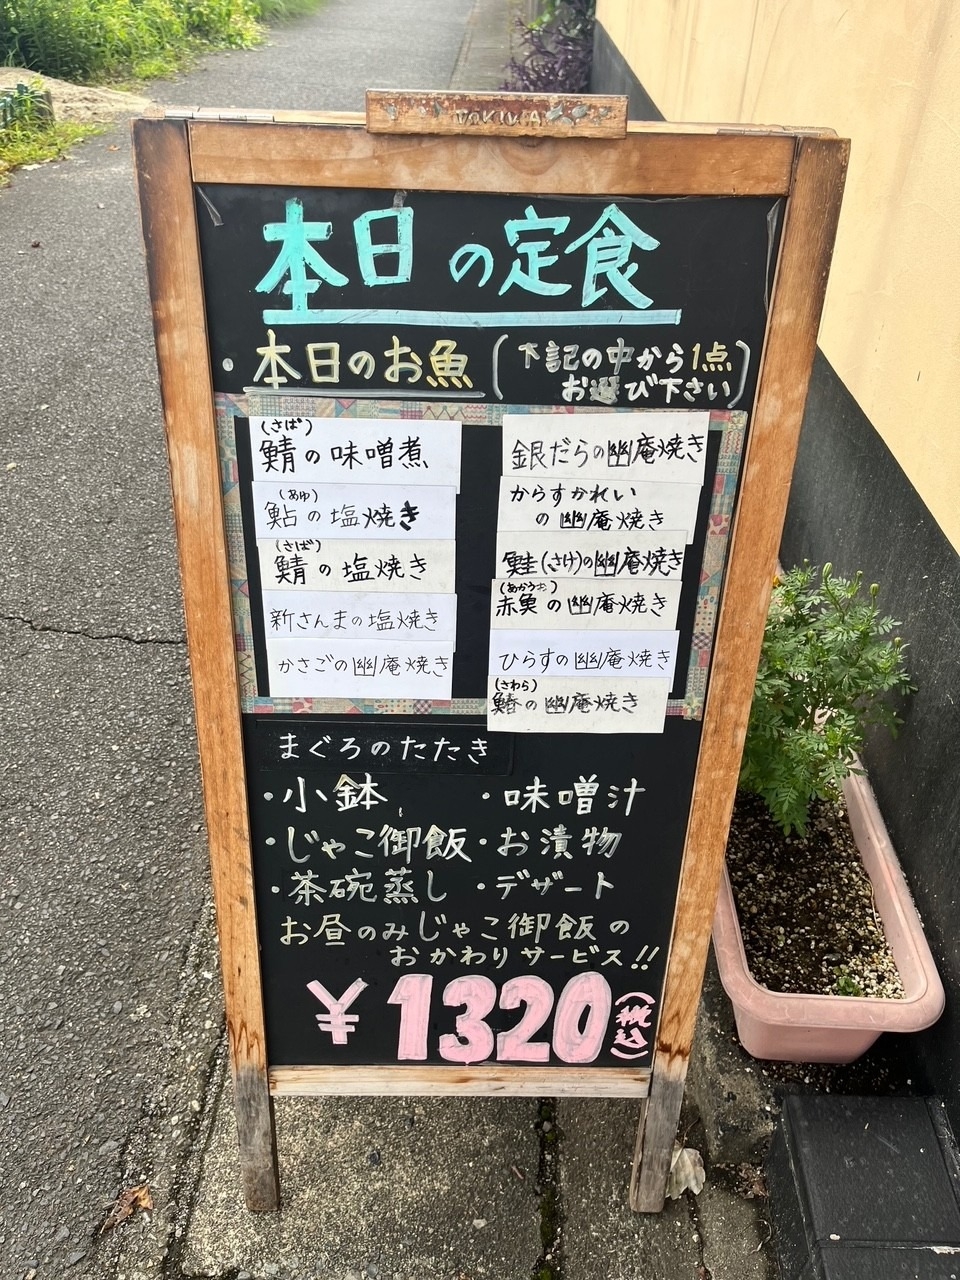 本日の定食
・本日のお魚(下記の中から1点
お選び下さい)
(さば)
鯖の味噌煮
(あゆ)
鮎の塩焼き
(さば)
鯖の塩焼き
新さんまの塩焼き
かさごの幽庵焼き
銀だらの幽庵焼き
からすかれい
の幽庵焼き
鮭(さけ)の幽庵焼き
(あかうお)
赤魚の幽庵焼き
ひらすの幽庵焼き
(さわら)
鰆の幽庵焼き
まぐろのたたき
・小鉢 ・味噌汁
・じゃこ御飯 ・お漬物
・茶碗蒸し ・デザート
お昼のみじゃこ御飯の
おかわりサービス!!
¥1320(税込)